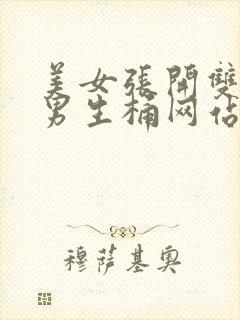 美女張開雙
男生桶网站
穆萨基奥